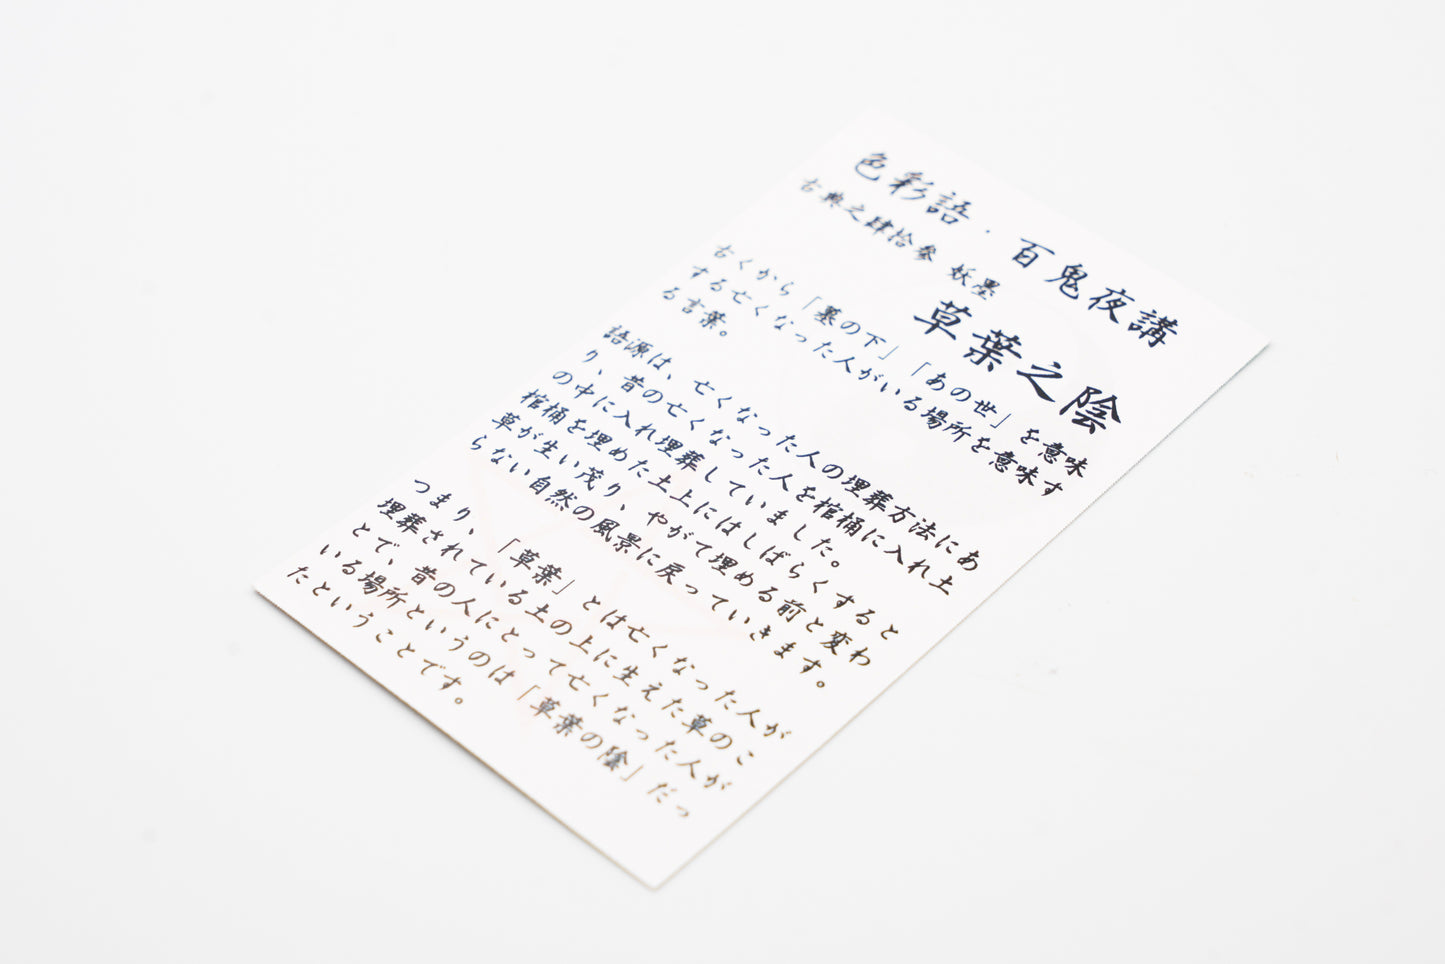 色彩語・百鬼夜講
古典之肆拾参 妖墨
草葉之陰
古くから「墓の下」「あの世」を意味
する亡くなった人がいる場所を意味す
る言葉。
語源は、亡くなった人の埋葬方法にあ
り、昔の亡くなった人を棺桶に入れ土
の中に入れ埋葬していました。
棺桶を埋めた土上にはしばらくすると
草が生い茂り、やがて埋める前と変わ
らない自然の風景に戻っていきます。
つまり、「草葉」とは亡くなった人が
埋葬されている土の上に生えた草のこ
とで、昔の人にとって亡くなった人が
いる場所というのは「草葉の陰」だっ
たということです。